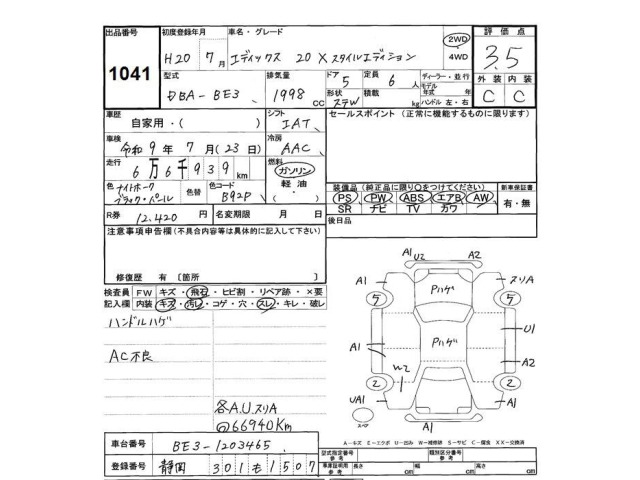 出品番号
1041
初度登録年月
H20年 7月
車名・グレード
エディックス 20X スタイルエディション
2WD
4WD
評価点
3.5
外装 内装
C C
型式
DBA-BE3
排気量
1998 cc
ドア 5
形状 ステW
定員 6人
積載 kg
ディーラー・並行
モデル年式 年式
ハンドル 左・右
車歴
自家用・( )
シフト
IAT
セールスポイント (正常に機能するものに限ります)
車検
令和 9年 7月 (23日)
冷房
AAC
走行
6万6千939km
燃料
ガソリン
軽油
色 ナイトホーク
ブラック・パール
色替
色コード
B92P
装備品 (純正品に限り○をつけてください)
PS PW ABS エアB AW
SR ナビ TV カワ
新車保証書
有・無
R券 12,420円
名変期限 月 日
後日品
注意事項申告欄(不具合内容等は具体的に記入して下さい)
修復歴 有 [箇所 ]
検査員記入欄
FW キズ・飛石・ヒビ割・リペア跡・×要
内装 キズ・汚レ・コゲ・穴・スレ・キレ・破レ
ハンドルハゲ
AC不良
各A.U.スリA
@66940Km
車台番号 BE3-1203465
登録番号 静岡 301 も 1507
A1 U2 A2
A1 スリA
Pハゲ
5 5
U1
A1 Pハゲ
A2
W2
2 2
UA1 A1
A1
スペア
A-キズ E-エクボ U-凹み W-補修跡 S-サビ C-腐食 XX-交換済
型式指定番号 参考
類別区分番号 参考
車庫証明用 参考 長さ cm 幅 cm 高さ cm